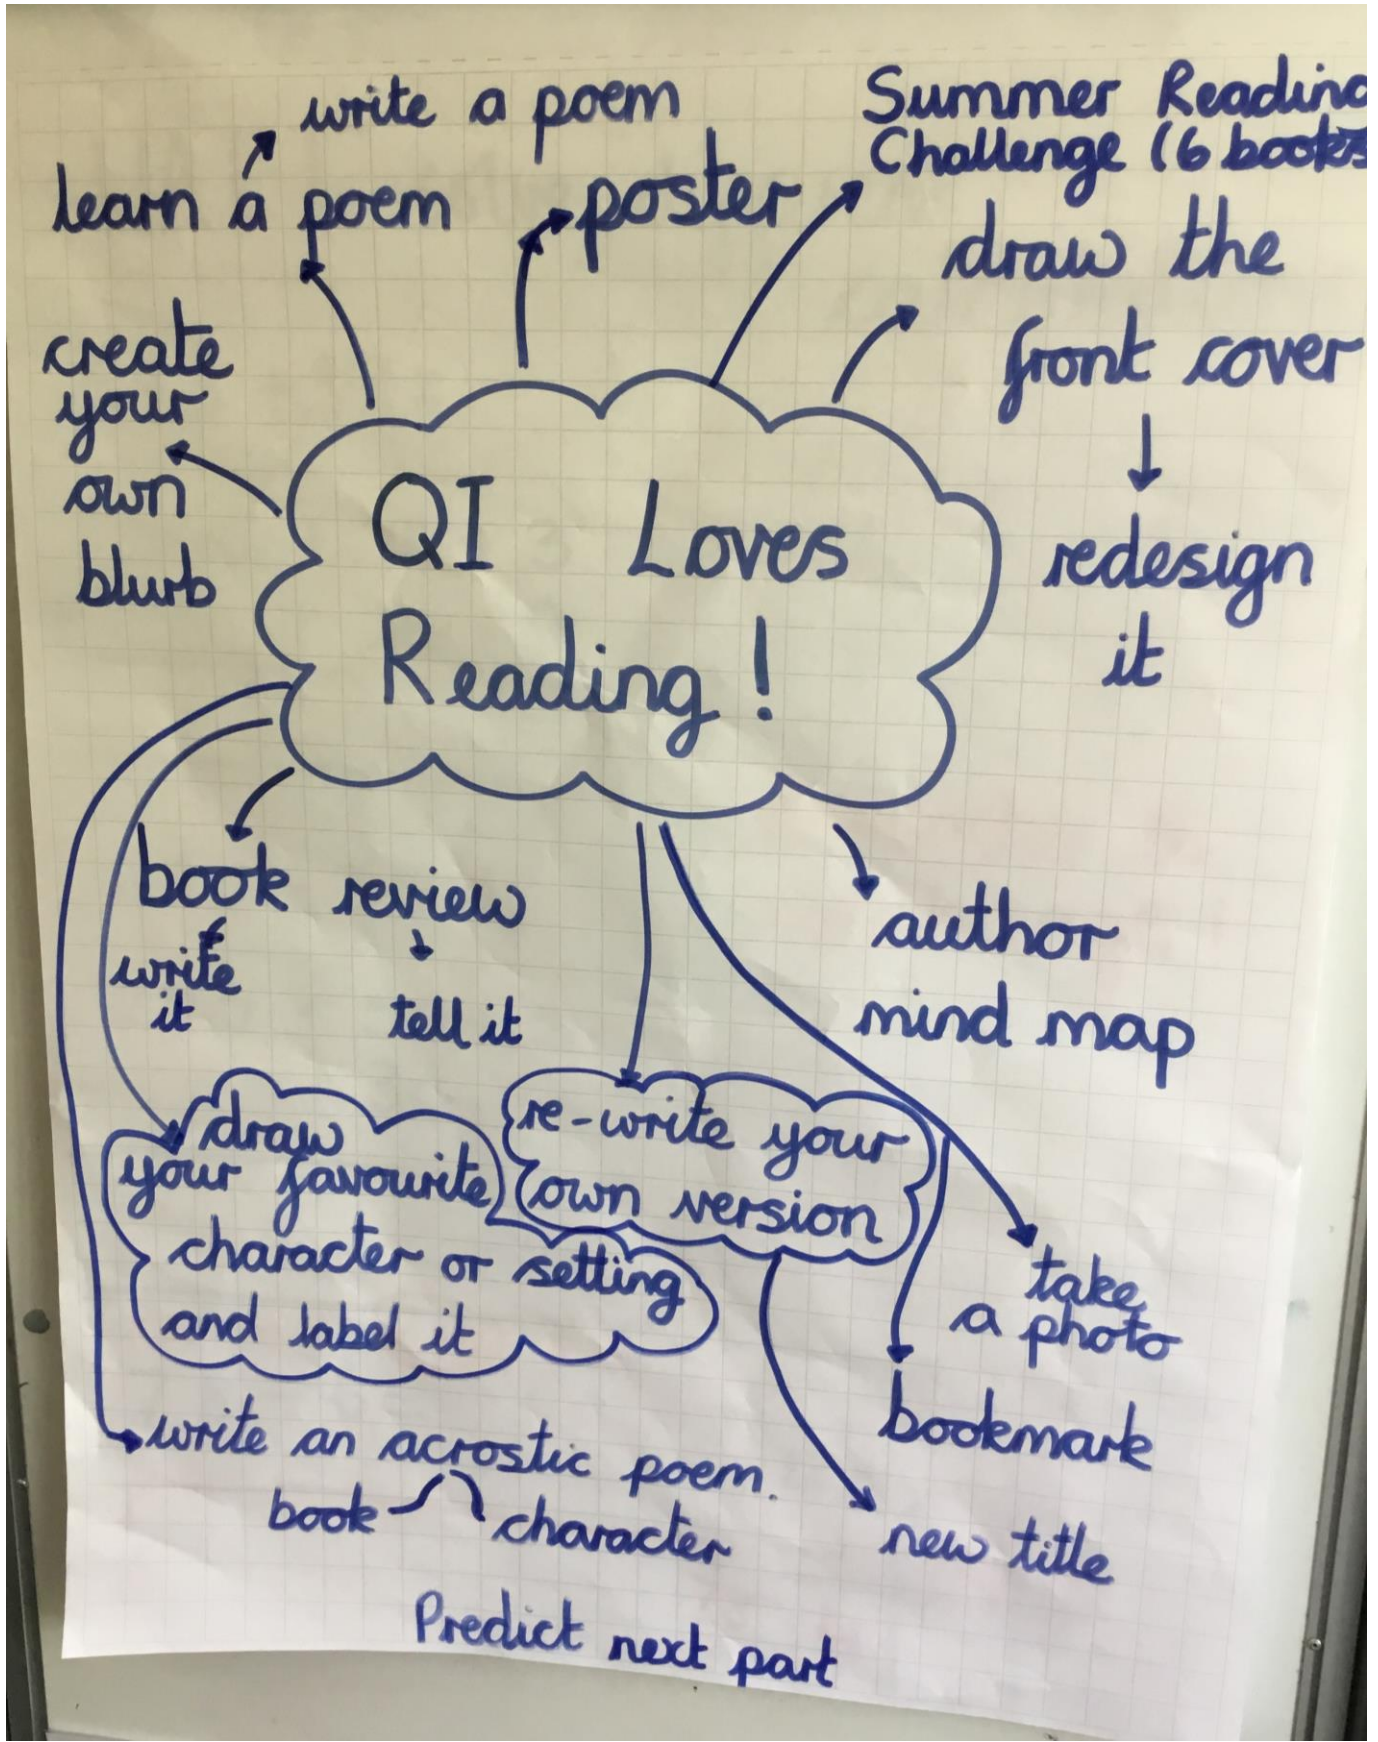 write a poem
learn a poem
poster
Summer Reading
Challenge (6 books
draw the
front cover
redesign
it
create
your
own
blurb
QI Loves
Reading!
book review
write
it
tell it
author
mind map
draw
your favourite
character or setting
and label it
re-write your
own version
take
a photo
bookmark
new title
write an acrostic poem.
book
character
Predict next part